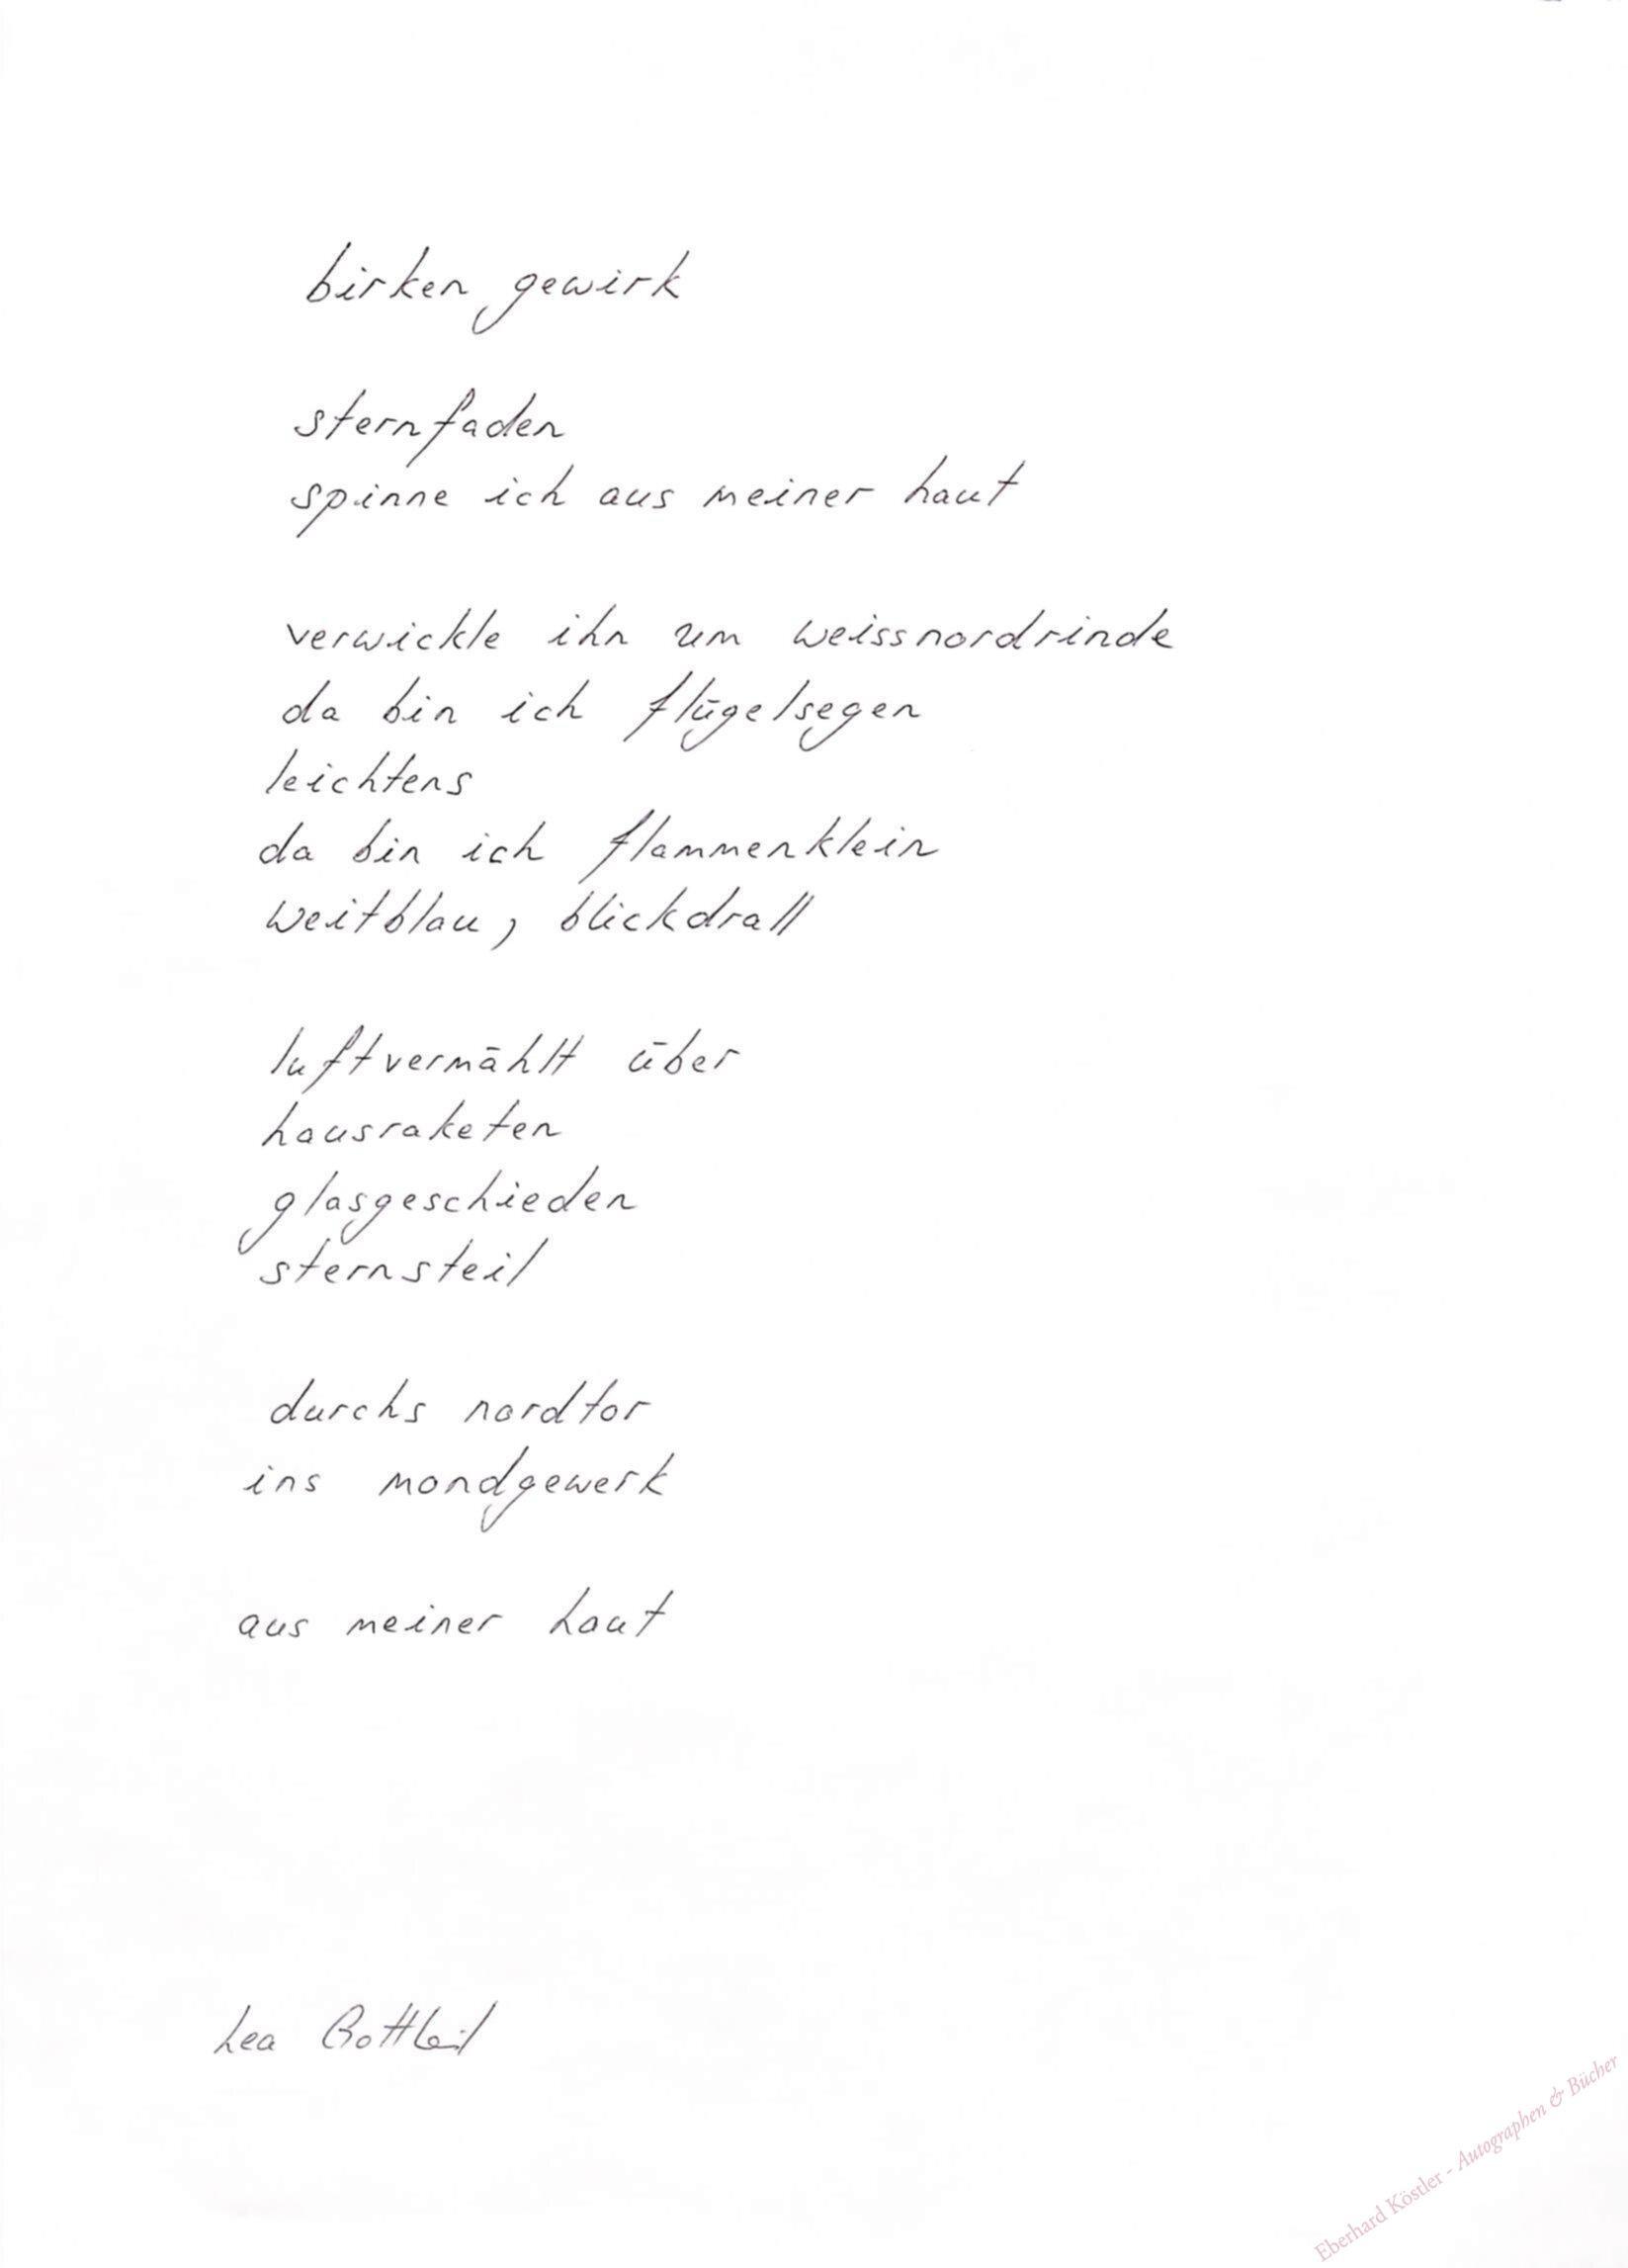 birken gewirk
sternfaden
spinne ich aus meiner haut
verwickle ihn um weissnordrinde
da bin ich flügelsegen
leichtens
da bin ich flammenklein
weitblau, blickdrall
luftvermählt über
hausraketen
glasgeschieden
sternsteil
durchs nordtor
ins mondgewerk
aus meiner haut
Lea Gottheil
Eberhard Köstler - Autographen & Bücher